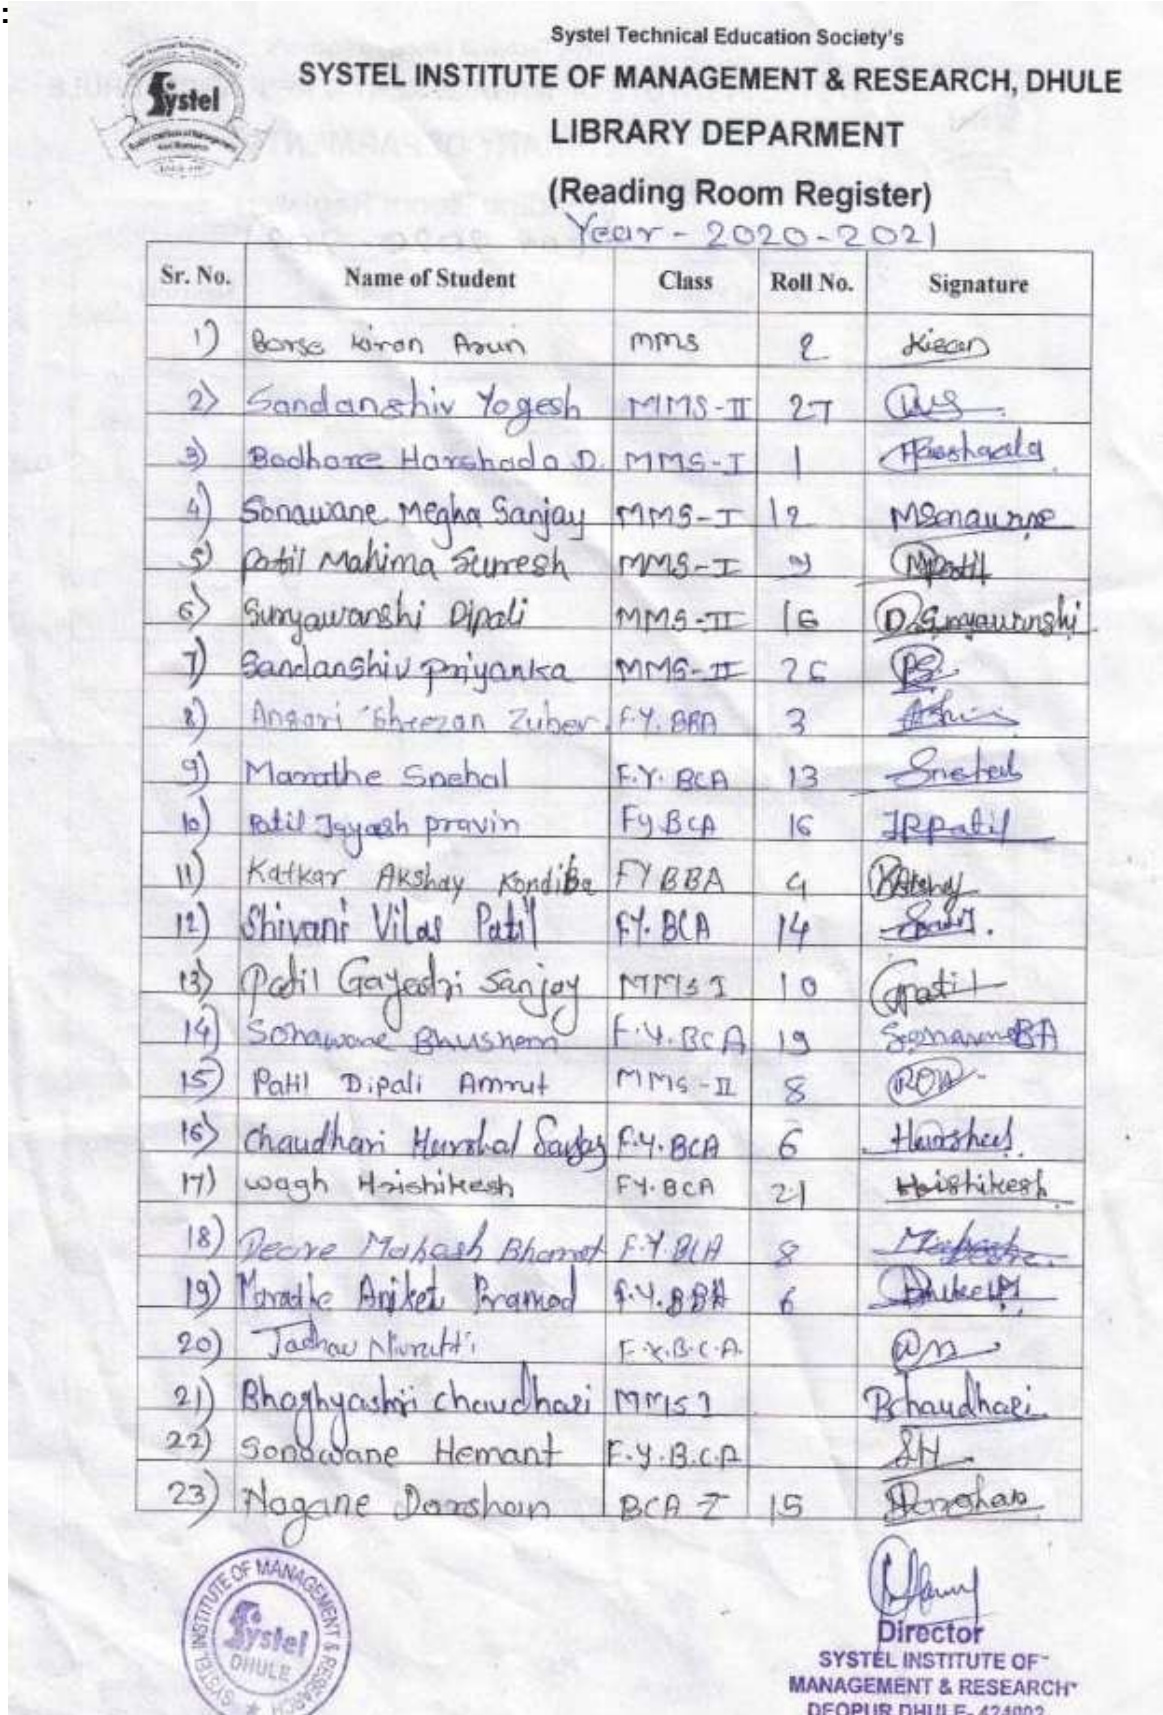 :
Systel Technical Education Society's
SYSTEL INSTITUTE OF MANAGEMENT & RESEARCH, DHULE
Systel
LIBRARY DEPARMENT
(Reading Room Register)
Year - 2020-2021
Sr. No. Name of Student Class Roll No. Signature
1) Borse Kiran Arun mms 2 Kiran
2) Sandanshiv Yogesh MMS-II 27
3) Badhore Harshada D. MMS-I 1 Harshada
4) Sonawane Megha Sanjay MMS-I 12 MSonawane
5) Patil Mahima Suresh MMS-I 9 MPatil
6) Suryawanshi Dipali MMS-II 16 D.Suryawanshi
7) Sandanshiv Priyanka MMS-II 26 PS
8) Ansari Sheezan Zuber F.Y. BBA 3
9) Marathe Snehal F.Y. BCA 13 Snehal
10) Patil Jayesh pravin Fy BCA 16 JPpatil
11) Katkar Akshay Kondiba FY BBA 4 Akshay
12) Shivani Vilas Patil FY. BCA 14
13) Patil Gayatri Sanjay MMS I 10 Gpatil
14) Sonawane Bhushan F.Y.BCA 19 SonawaneBA
15) Patil Dipali Amrut MMS-II 8
16) Chaudhari Harshal Sanjay F.Y.BCA 6 Harshal
17) wagh Hrishikesh FY.BCA 21 Hrishikesh
18) Deore Mahesh Bharat F.Y.BCA 8
19) Marathe Aniket Pramod F.Y.BBA 6 Aniket
20) Jadhav Nivrutti F.Y.B.C.A.
21) Bhaghyashri chaudhari MMS I Bchaudhari
22) Sonawane Hemant F.Y.B.C.A SH
23) Nagane Darshan BCA I 15 Darshan
SYSTEL INSTITUTE OF MANAGEMENT & RESEARCH
Systel
DHULE
Director
SYSTEL INSTITUTE OF
MANAGEMENT & RESEARCH
DEOPUR DHULE- 424002